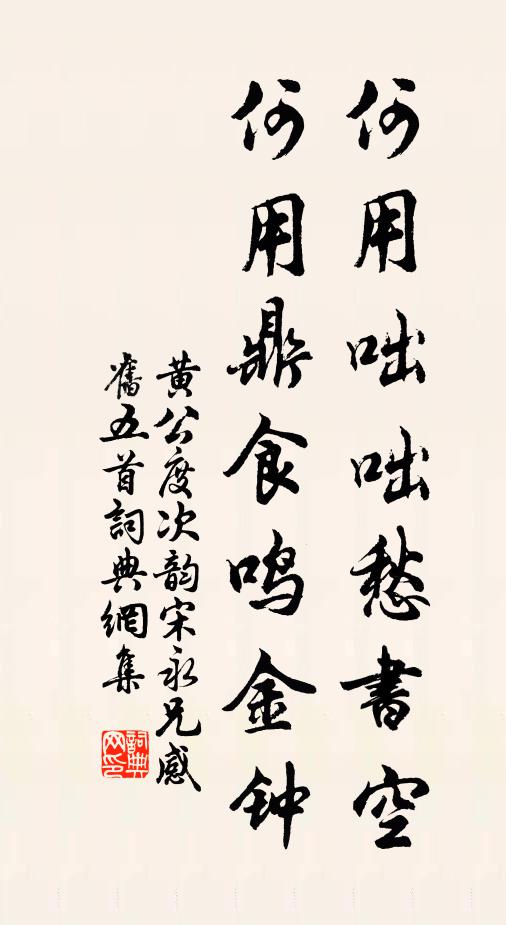 何用咄咄愁書空
何用鼎食鸣金钟
黄公度次韵宋永兄感
舊五首詞典網集
詞典
网印